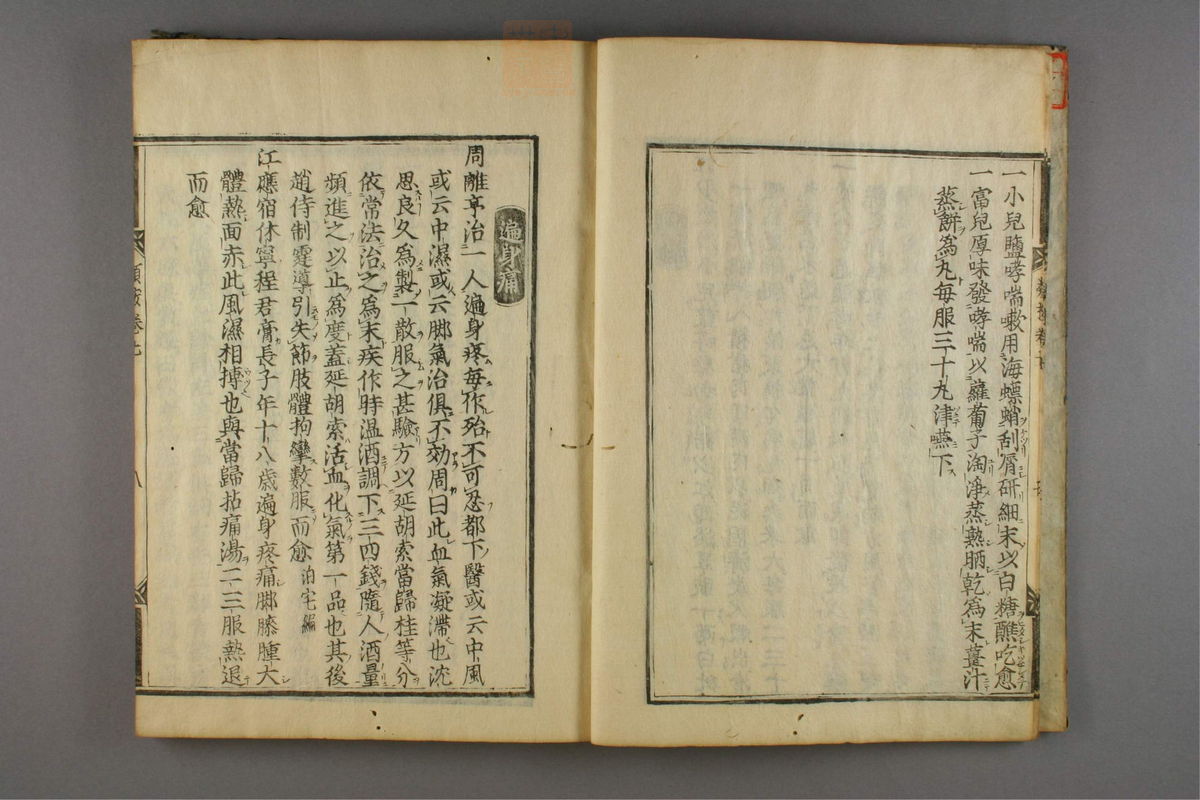 一小兒鹽哮喘嗽用海螵蛸刮屑研細末以白糖蘸吃愈
一富兒厚味發哮喘以蘿蔔子淘淨蒸熟晒乾為末薑汁
蒸餅為丸每服三十丸津嚥下
遍身痛
周離亭治一人遍身疼每作殆不可忍都下醫或云中風
或云中濕或云脚氣治俱不効周曰此血氣凝滯也沈
思良久為製一散服之甚驗方以延胡索當歸桂等分
依常法治之為末疾作時温酒調下三四錢隨人酒量
頻進之以止為度蓋延胡索活血化氣第一品也其後
趙侍制霆導引失節肢體拘攣數服而愈 泊宅編
江應宿休寧程君膏長子年十八歳遍身疼痛脚膝腫大
體熱面赤此風濕相搏也與當歸拈痛湯二三服熱退
而愈